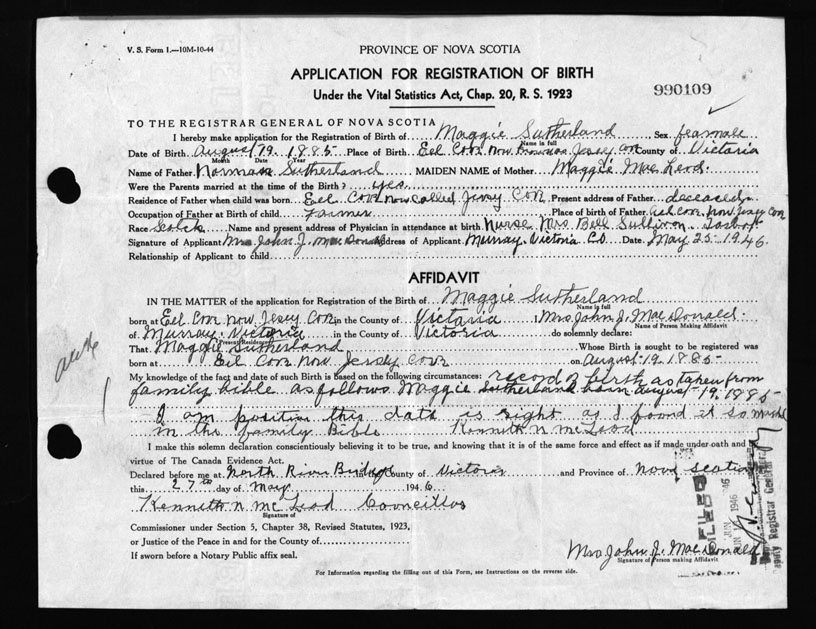 V. S. Form 1.—10M-10-44
PROVINCE OF NOVA SCOTIA
APPLICATION FOR REGISTRATION OF BIRTH
Under the Vital Statistics Act, Chap. 20, R. S. 1923
990109
TO THE REGISTRAR GENERAL OF NOVA SCOTIA
I hereby make application for the Registration of Birth of Maggie Sutherland Sex feamale
Name in full
Date of Birth August 19. 1885 Place of Birth Eel Cove Now Jersey Cove County of Victoria
Month Date Year
Name of Father Norman Sutherland MAIDEN NAME of Mother Maggie Mac Leod
Were the Parents married at the time of the Birth? yes
Residence of Father when child was born Eel Cove now called Jersey Cove Present address of Father deceased
Occupation of Father at Birth of child farmer Place of birth of Father Eel Cove Now Jersey Cove
Race Scotch Name and present address of Physician in attendance at birth Nurse Mrs Bell Sullivan
Signature of Applicant Mrs John J. Mac Donald Address of Applicant Murray. Victoria Co Date May 25-1946.
Relationship of Applicant to child
AFFIDAVIT
IN THE MATTER of the application for Registration of the Birth of Maggie Sutherland
Name in full
born at Eel Cove now Jersey Cove in the County of Victoria I, Mrs John J. MacDonald
Name of Person Making Affidavit
of Murray. Victoria in the County of Victoria do solemnly declare:
Present Residence
That Maggie Sutherland Whose Birth is sought to be registered was
born at Eel Cove Now Jersey Cove on August-19.1885-
My knowledge of the fact and date of such Birth is Based on the following circumstances: record of birth as taken from
family bible as follows Maggie Sutherland born August 19, 1885-
I am positive this date is right as I found it so marked
in the family Bible Kenneth N McLeod
I make this solemn declaration conscientiously believing it to be true, and knowing that it is of the same force and effect as if made under oath and by
virtue of The Canada Evidence Act.
Declared before me at North River Bridge in the County of Victoria and Province of Nova Scotia
this 27th day of May 1946
Kenneth N McLeod Councillor
Signature of
Commissioner under Section 5, Chapter 38, Revised Statutes, 1923,
or Justice of the Peace in and for the County of
If sworn before a Notary Public affix seal.
Mrs John J. MacDonald
Signature of Person making Affidavit
For Information regarding the filling out of this Form, see Instructions on the reverse side.
FILED
JUN 1946
Deputy Registrar General